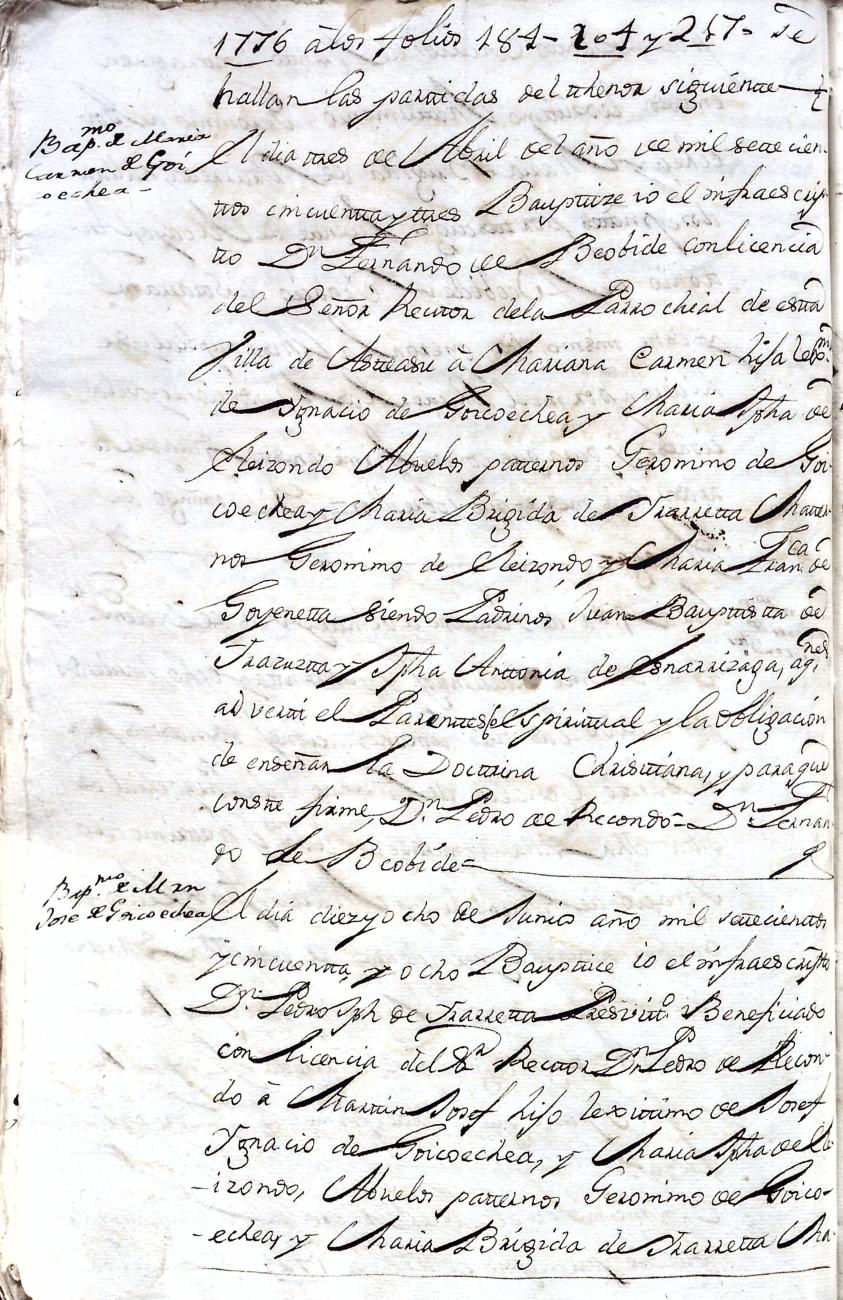 1776 â los folios 184 - 204 y 247 - se
hallan las parttidas del tthenor siguientte
Bap.mo de Maria
Carmen de Goi
coechea -
El dia ttres de Abril del año de mil settecien-
ttos cincuentta y ttres Bauptize io el infraescrip-
tto Dn Fernando de Beobide con licencia
del Señor Recttor de la Parrochial de estta
Villa de Astteasu â Mariana Carmen hija lexma
de Ygnacio de Goicoechea y Maria Jpha de
Eleizondo Abuelos patternos Geronimo de Goi-
coechea y Maria Brigida de Yrarretta Matter-
nos Geronimo de Eleizondo y Maria Franca de
Goyenetta siendo Padrinos Juan Bauptistta de
Yrazuzta y Jpha Anttonia de Esnarrizaga, â qnes
advertti el Parenttesco Espirittual y la obligacion
de enseñar la Docttrina Christtiana, y para que
constte firme, Dn Pedro de Recondo = Dn Fernan-
do de Beobide =
Bap.mo de Mrn
Jose de Goicoechea
El dia diez y ocho de Junio año mil settecienttos
y cincuentta y ocho Baupttice io el infraescriptto
Dn Pedro Jph de Yrarretta Presvitto Beneficiado
con licencia del Sr Recttor Dn Pedro de Recon-
do â Marttin Josef hijo lexittimo de Josef
Ygnacio de Goicoechea, y Maria Jpha de Ele-
-izondo, Abuelos patternos Geronimo de Goico-
-echea, y Maria Brigida de Yrarretta Ma-